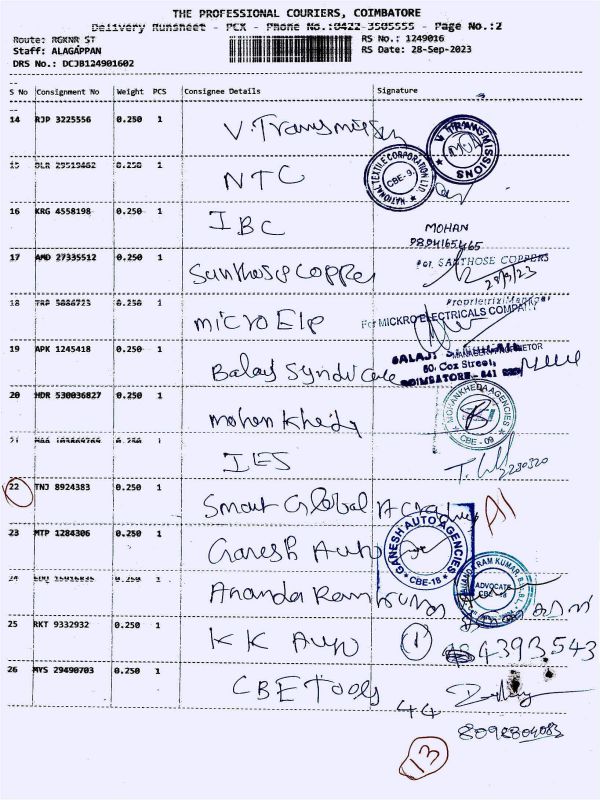 THE PROFESSIONAL COURIERS, COIMBATORE
Delivery Runsheet - PCX - Phone No.:0422-3505555 - Page No.:2
Route: RGKNR ST
RS No.: 1249016
Staff: ALAGAPPAN
RS Date: 28-Sep-2023
DRS No.: DCJB124901602
S No Consignment No Weight PCS Consignee Details Signature
14 RJP 3225556 0.250 1 V. Transmission
V TRANSMISSIONS
15 29519462 0.250 1 NTC
NATIONAL TEXTILE CORPORATION LTD. CBE-9.
16 KRG 4558198 0.250 1 IBC
MOHAN
17 AMD 27335512 0.250 1 Santhose Copper
For SANTHOSE COPPERS
28/9/23
18 TRP 0.250 1 Micro Ele
For MICKRO ELECTRICALS COMPANY
19 APK 1245418 0.250 1 Balaji Syndicate
60. Cox Street,
COIMBATORE - 641
20 HDR 530036827 0.250 1 Mohan Kheda
MOHANKHEDA AGENCIES CBE - 09
21 0.250 1 IES
22 TNJ 8924383 0.250 1 Smart Global Academy
A1
23 MTP 1284306 0.250 1 Ganesh Auto
GANESH AUTO AGENCIES CBE-18
24 0.250 1 Ananda Ramkumar
RAM KUMAR ADVOCATE CBE - 18
25 RKT 9332932 0.250 1 KK Auto
1 4393543
26 MYS 29490703 0.250 1 CBE Tools
44
13